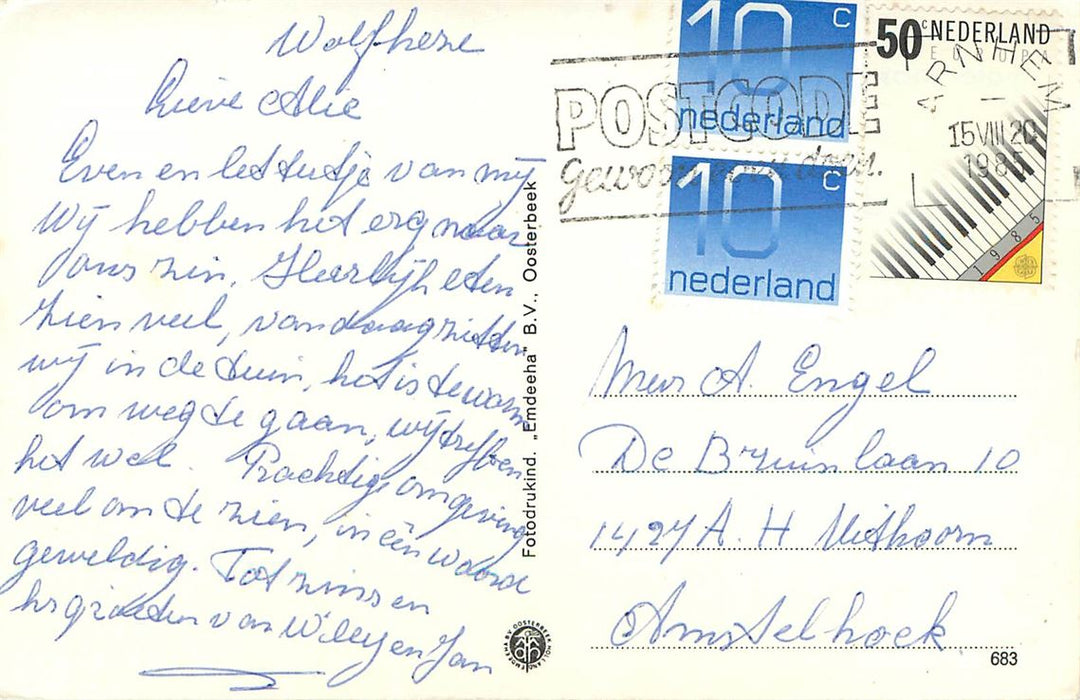 Wolfheze
Lieve Alie
Even en lettertje van mij
Wij hebben het erg naar
ons zin. Heerlijk eten
zien veel, vandaag zitten
wij in de tuin, het is te warm
om weg te gaan, wij treffen
het wel. Prachtige omgeving
veel om te zien, in één woord
geweldig. Tot ziens en
hr groeten van Willy en Jan
Fotodrukind. „Emdeeha" B.V., Oosterbeek
10 c
nederland
10 c
nederland
50 c NEDERLAND
EUROPA
1985
POSTCODE
gewoon doen.
ARNHEM
15 VIII 20
1985
Mevr A. Engel
De Bruinlaan 10
1427 A. H Uithoorn
Amstelhoek
683